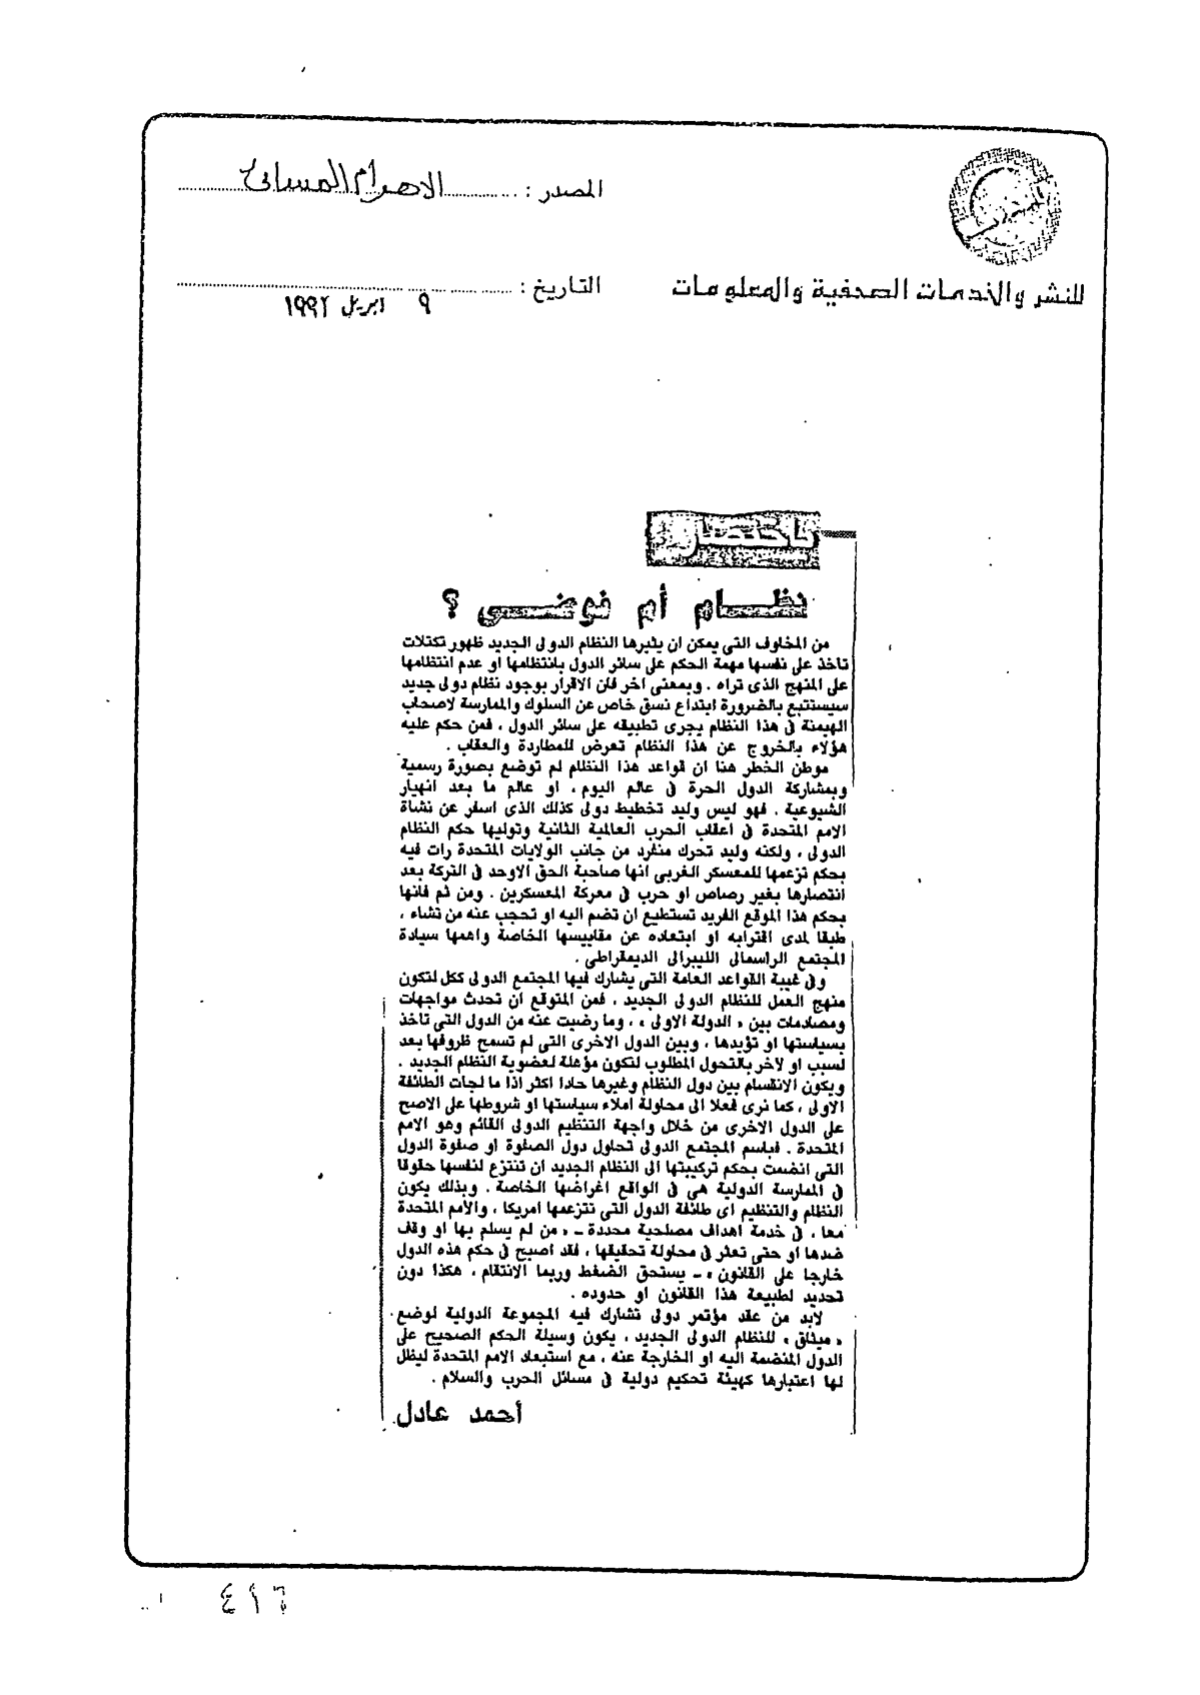 المصدر : الاهرام المسائى
للنشر والخدمات الصحفية والمعلومات
التاريخ : ٩ ابريل ١٩٩٢
باختصار
نظــام أم فوضــى ؟
من المخاوف التى يمكن ان يثيرها النظام الدولى الجديد ظهور تكتلات
تاخذ على نفسها مهمة الحكم على سائر الدول بانتظامها او عدم انتظامها
على المنهج الذى تراه . وبمعنى اخر فان الاقرار بوجود نظام دولى جديد
سيستتبع بالضرورة ابتداع نسق خاص عن السلوك والممارسة لاصحاب
الهيمنة فى هذا النظام يجرى تطبيقه على سائر الدول ، فمن حكم عليه
هؤلاء بالخروج عن هذا النظام تعرض للمطاردة والعقاب .
موطن الخطر هنا ان قواعد هذا النظام لم توضع بصورة رسمية
وبمشاركة الدول الحرة فى عالم اليوم ، او عالم ما بعد انهيار
الشيوعية . فهو ليس وليد تخطيط دولى كذلك الذى اسفر عن نشاة
الامم المتحدة فى اعقاب الحرب العالمية الثانية وتوليها حكم النظام
الدولى ، ولكنه وليد تحرك منفرد من جانب الولايات المتحدة رات فيه
بحكم تزعمها للمعسكر الغربى انها صاحبة الحق الاوحد فى التركة بعد
انتصارها بغير رصاص او حرب فى معركة المعسكرين . ومن ثم فانها
بحكم هذا الموقع الفريد تستطيع ان تضم اليه او تحجب عنه من تشاء ،
طبقا لمدى اقترابه او ابتعاده عن مقاييسها الخاصة واهمها سيادة
المجتمع الراسمالى الليبرالى الديمقراطى .
وفى غيبة القواعد العامة التى يشارك فيها المجتمع الدولى ككل لتكون
منهج العمل للنظام الدولى الجديد ، فمن المتوقع ان تحدث مواجهات
ومصادمات بين « الدولة الاولى » ، وما رضيت عنه من الدول التى تاخذ
بسياستها او تؤيدها ، وبين الدول الاخرى التى لم تسمح ظروفها بعد
لسبب او لآخر بالتحول المطلوب لتكون مؤهلة لعضوية النظام الجديد .
ويكون الانقسام بين دول النظام وغيرها حادا اكثر اذا ما لجات الطائفة
الاولى ، كما نرى فعلا الى محاولة املاء سياستها او شروطها على الاصح
على الدول الاخرى من خلال واجهة التنظيم الدولى القائم وهو الامم
المتحدة . فباسم المجتمع الدولى تحاول دول الصفوة او صفوة الدول
التى انضمت بحكم تركيبتها الى النظام الجديد ان تنتزع لنفسها حقوقا
فى الممارسة الدولية هى فى الواقع اغراضها الخاصة . وبذلك يكون
النظام والتنظيم اى طائفة الدول التى تتزعمها امريكا ، والأمم المتحدة
معا ، فى خدمة اهداف مصلحية محددة - « من لم يسلم بها او وقف
ضدها او حتى تعثر فى محاولة تحقيقها ، فقد اصبح فى حكم هذه الدول
خارجا على القانون » - يستحق الضغط وربما الانتقام ، هكذا دون
تحديد لطبيعة هذا القانون او حدوده .
لابد من عقد مؤتمر دولى تشارك فيه المجموعة الدولية لوضع
« ميثاق » للنظام الدولى الجديد ، يكون وسيلة الحكم الصحيح على
الدول المنضمة اليه او الخارجة عنه ، مع استبعاد الامم المتحدة ليظل
لها اعتبارها كهيئة تحكيم دولية فى مسائل الحرب والسلام .
أحمد عادل
٤١٦